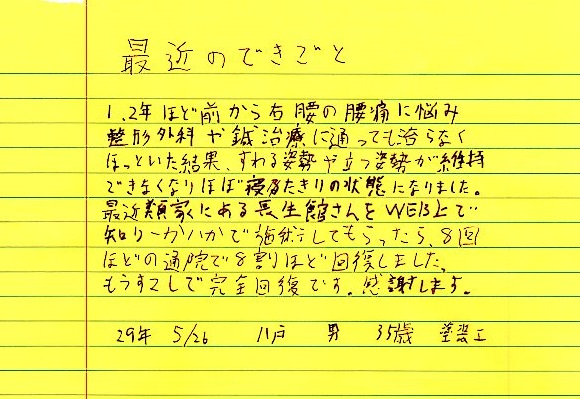 最近のできごと
1、2年ほど前から右腰の腰痛に悩み
整形外科や鍼治療に通っても治らなく
ほっといた結果、すわる姿勢や立つ姿勢が維持
できなくなりほぼ寝たきりの状態になりました。
最近類家にある長生館さんをWEB上で
知り一かバかで施術してもらったら、8回
ほどの通院で8割ほど回復しました。
もうすこしで完全回復です。感謝します。
29年 5/26 八戸 男 35歳 塗装工